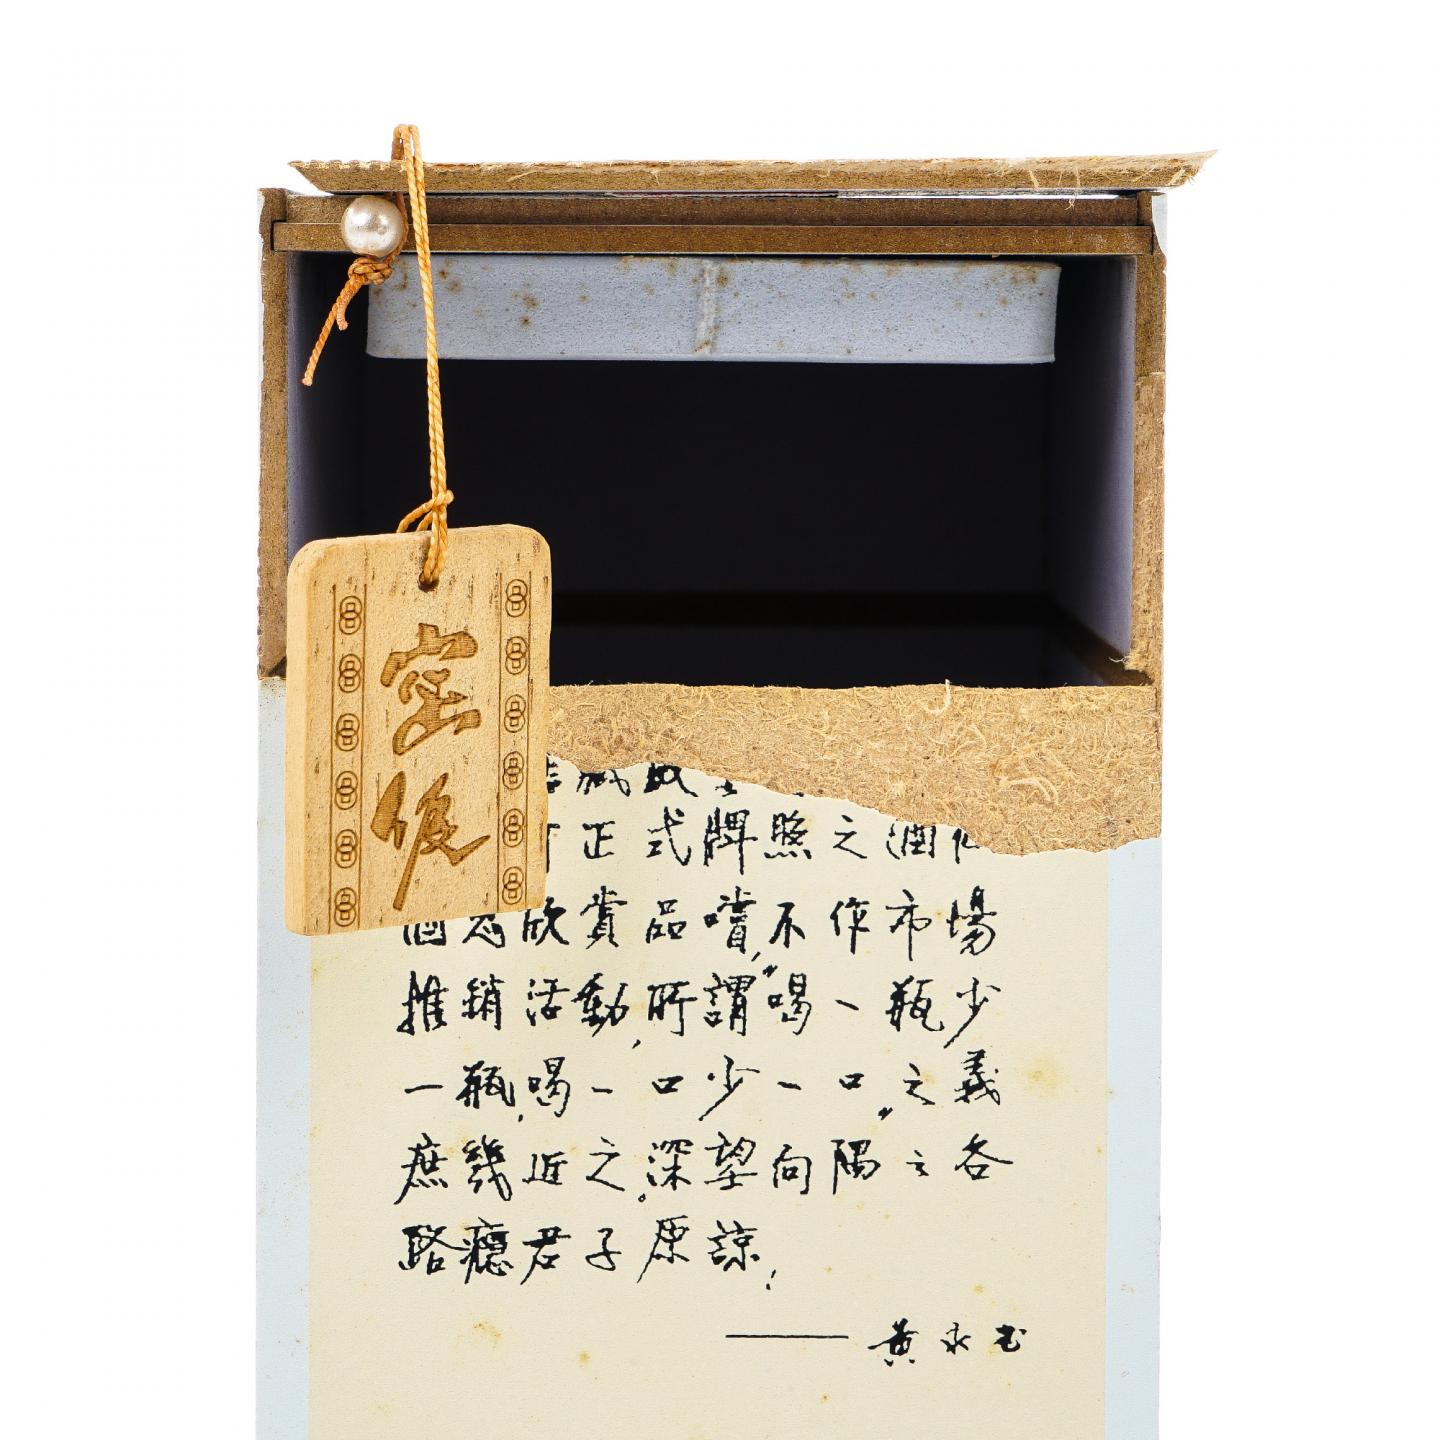 窖
藏
正式牌照之酒仙
欣賞品嚐,不作市場
推銷活動,所謂“喝一瓶少
一瓶,喝一口少一口”之義
庶幾近之。深望向隅之各
路癮君子原諒!
——黃永玉